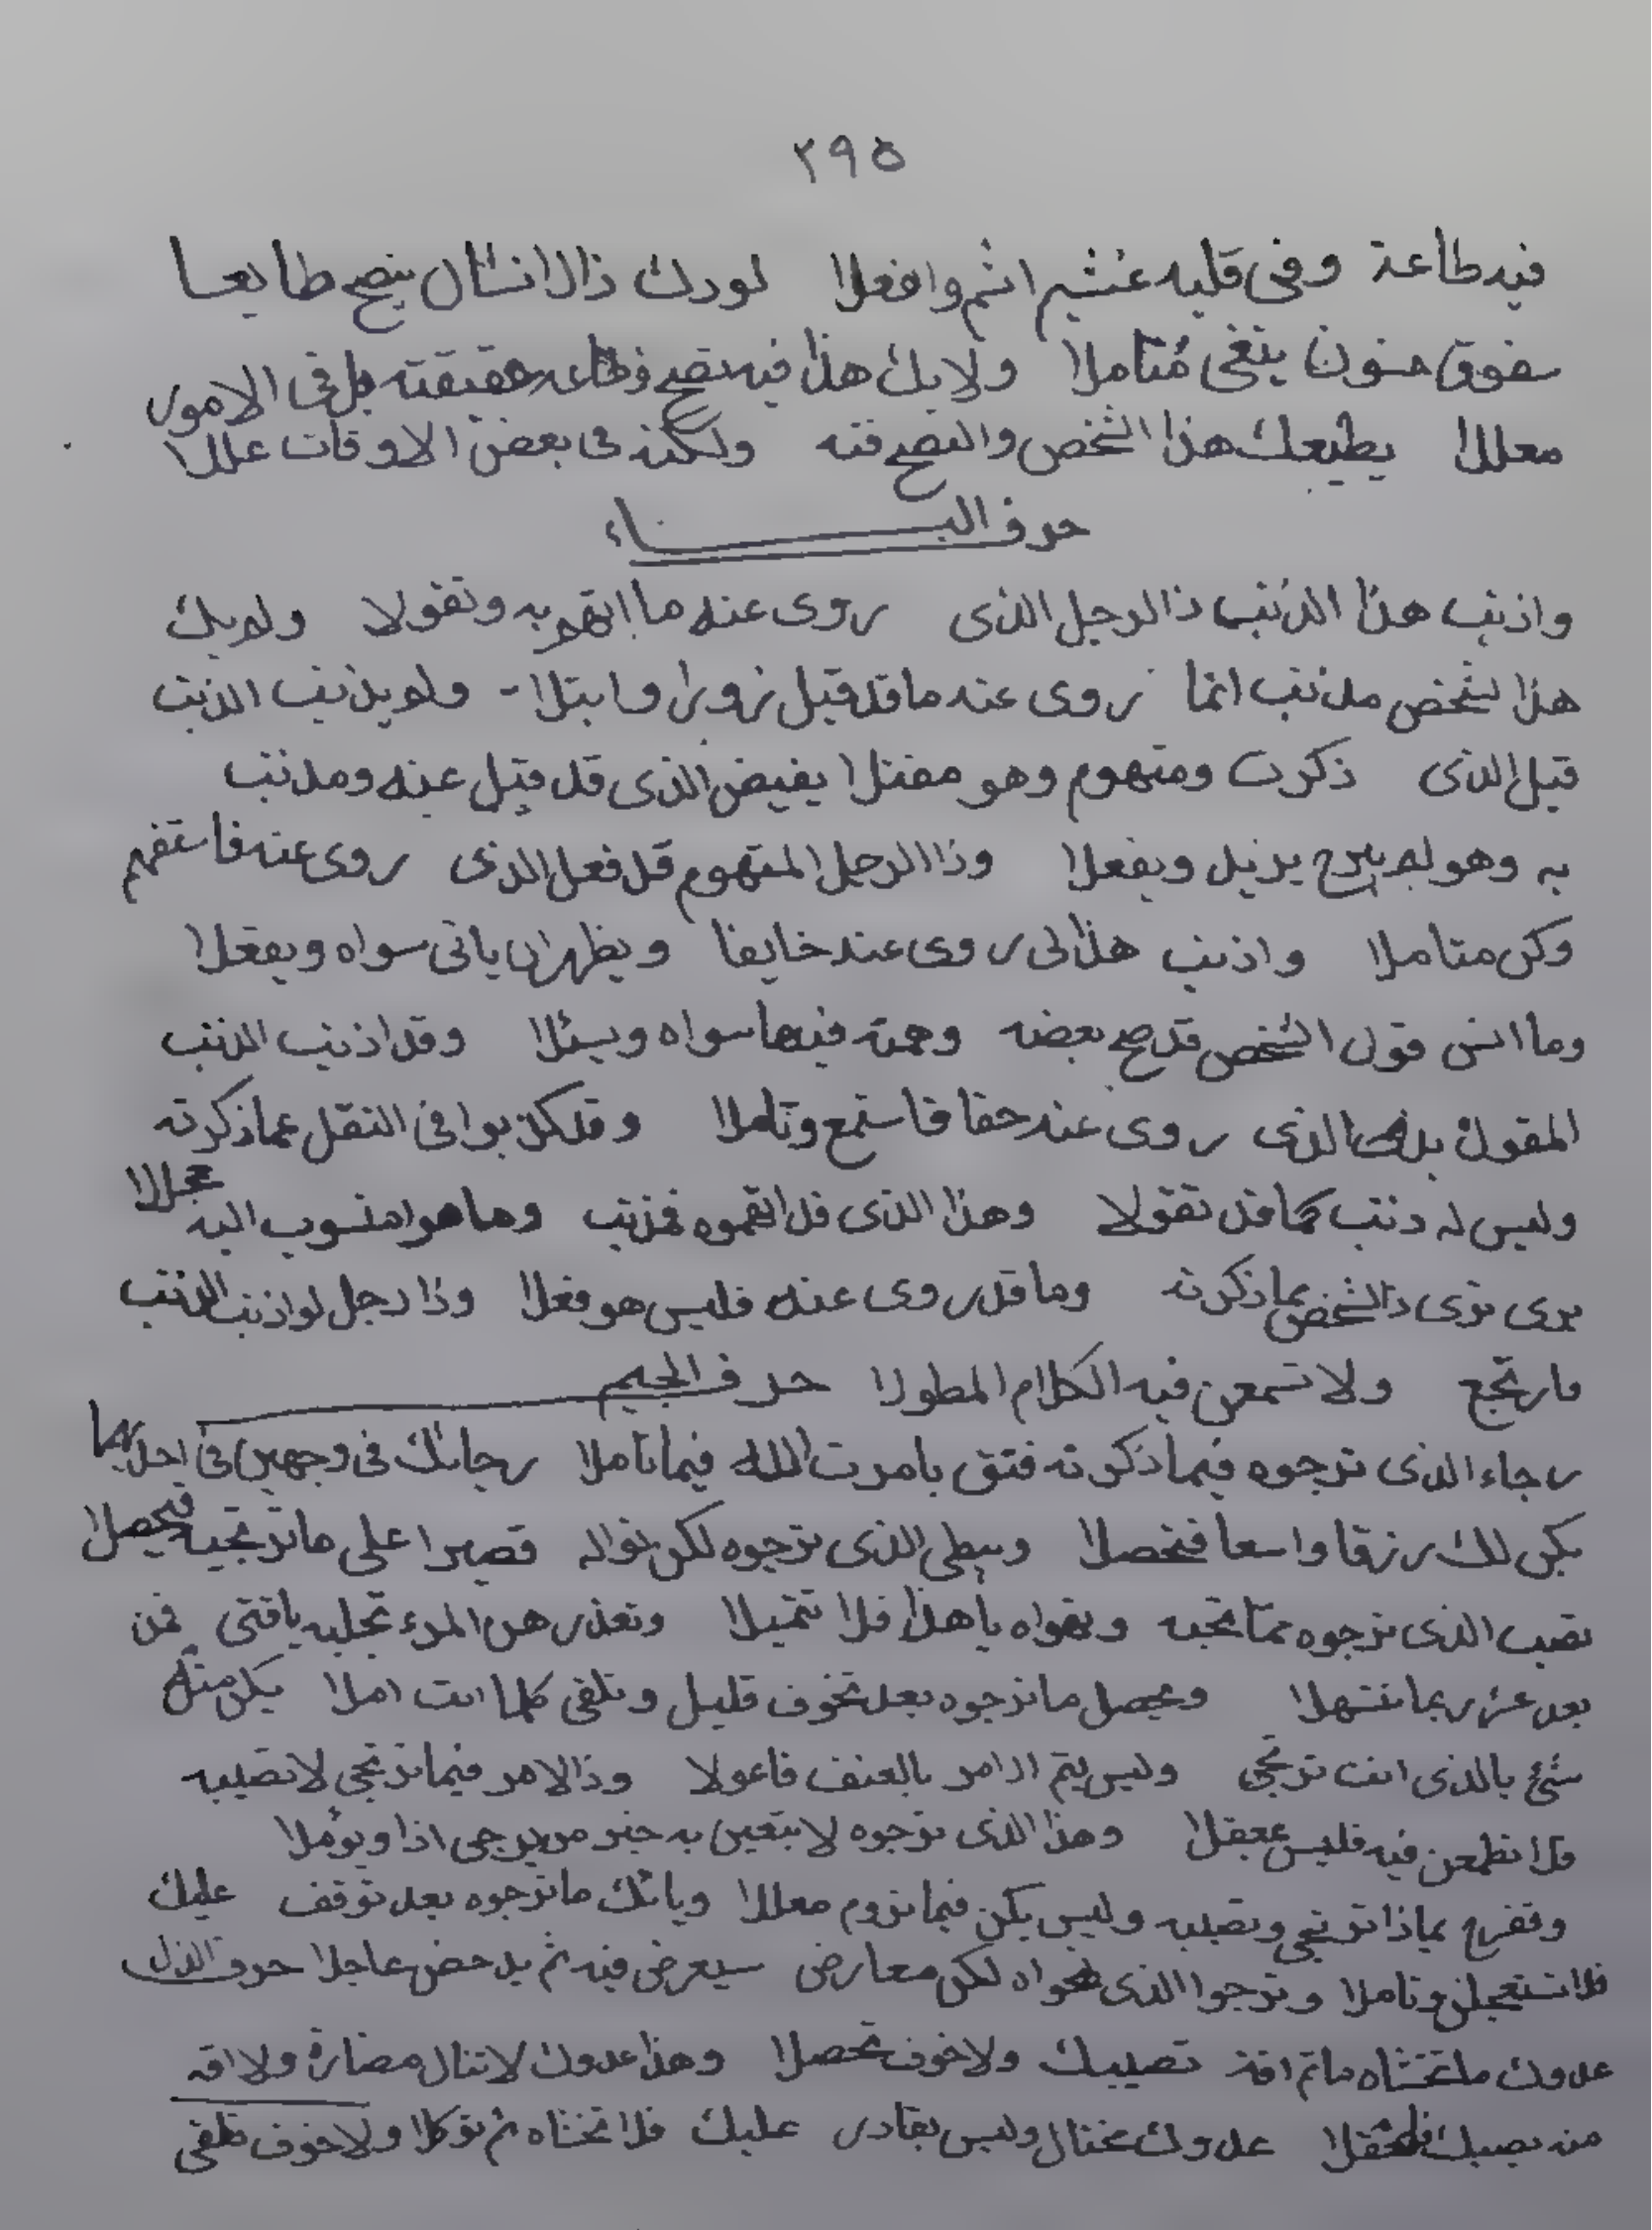 ٢٩٥
فيه طاعة وفى قلبه غش اثم وافعلا لودك ذا الانسال ينصح طايعا
سفوق ينغى متاملا ولا يك هذا فيه نصح حقيقته بل فى الامور
معللا يطيعك هذا الشخص والنصح فنه ولكنه فى بعض الاوقات عللا
حرف الباء
واذنب هذا الذنب ذا الرجل الذى روى عنه ما اتهم به وتقولا ولم يك
هذا الشخص مذنب انما روى عنه ما قد قيل زورا وابتلا - ولم يذنب الذنب
قبل الذى ذكرت ومتهوم وهو مفتلا يفيض الذى قد قيل عنه ومذنب
به وهو لم يبرح يزيل ويفعلا وذا الرجل المتهوم قد فعل الذى روى عنه فاستفهم
وكن متاملا واذنب هذا لى روى عنه خايفا ويظهر ان ياتى سواه ويفعلا
وما انس قول الشخص قد صح بعضه وهمته فيها سواه ويسئلا وقد اذنب الذنب
المقول بذا الذى روى عنه حقا فاستمع وتاملا وقد كذبوا فى النقل عما ذكرته
وليس له ذنب كما قد تقولا وهذا الذى قد اتهموه فمذنب وما هوا منسوب اليه
برى ترى ذا الشخص بما ذكرته وما قد روى عنه فليس هو فعلا وذا رجل لو اذنب الذنب
ما رتجع ولا تسمعن فيه الكلام المطولا حرف الجيم
رجاء الذى ترجوه فيما ذكرته فتق بامرت الله فيما تاملا رجائك فى وجهين فى احديهما
يكن لك رزقا واسعا فتحصلا ويبطى الذى ترجوه لكن نواله فصبرا على ما ترتجيه فيحصلا
نصب الذى ترجوه مما تحبه وتهواه يا هذا فلا تتميلا وتعذر هن المرء تجلبه يافتى فمن
بعد عسر بما تسهلا ويحصل ما ترجوه بعد تخوف قليل وتلقى كلما انت املا يكن مثل
شئ بالذى انت ترتجى وليس يتم الامر بالعنف فاعولا وذا الامر فيما ترتجى لا تصيبه
فلا تطمعن فيه فليس معقلا وهذا الذى ترجوه لا يتعين به خير من يرجى اذا ويؤملا
وتفرح بماذا ترتجى وتصيبه وليس يكن فيما تروم معللا وياتك ما ترجوه بعد توقف عليك
فلا تستعجلن وتاملا وترجوا الذى تهواه لكن معارض سيعرض فيه ثم يدحض عاجلا حرف الدال
عدوك ما تخشاه ما تم افة تصيبك ولا خوف تحصلا وهذا عدوك لا تنال مضارة ولا افه
منه تصيبك عدوك مختال وليس بقادر عليك فلا تخشاه ثم توكلا ولا خوف تلقى